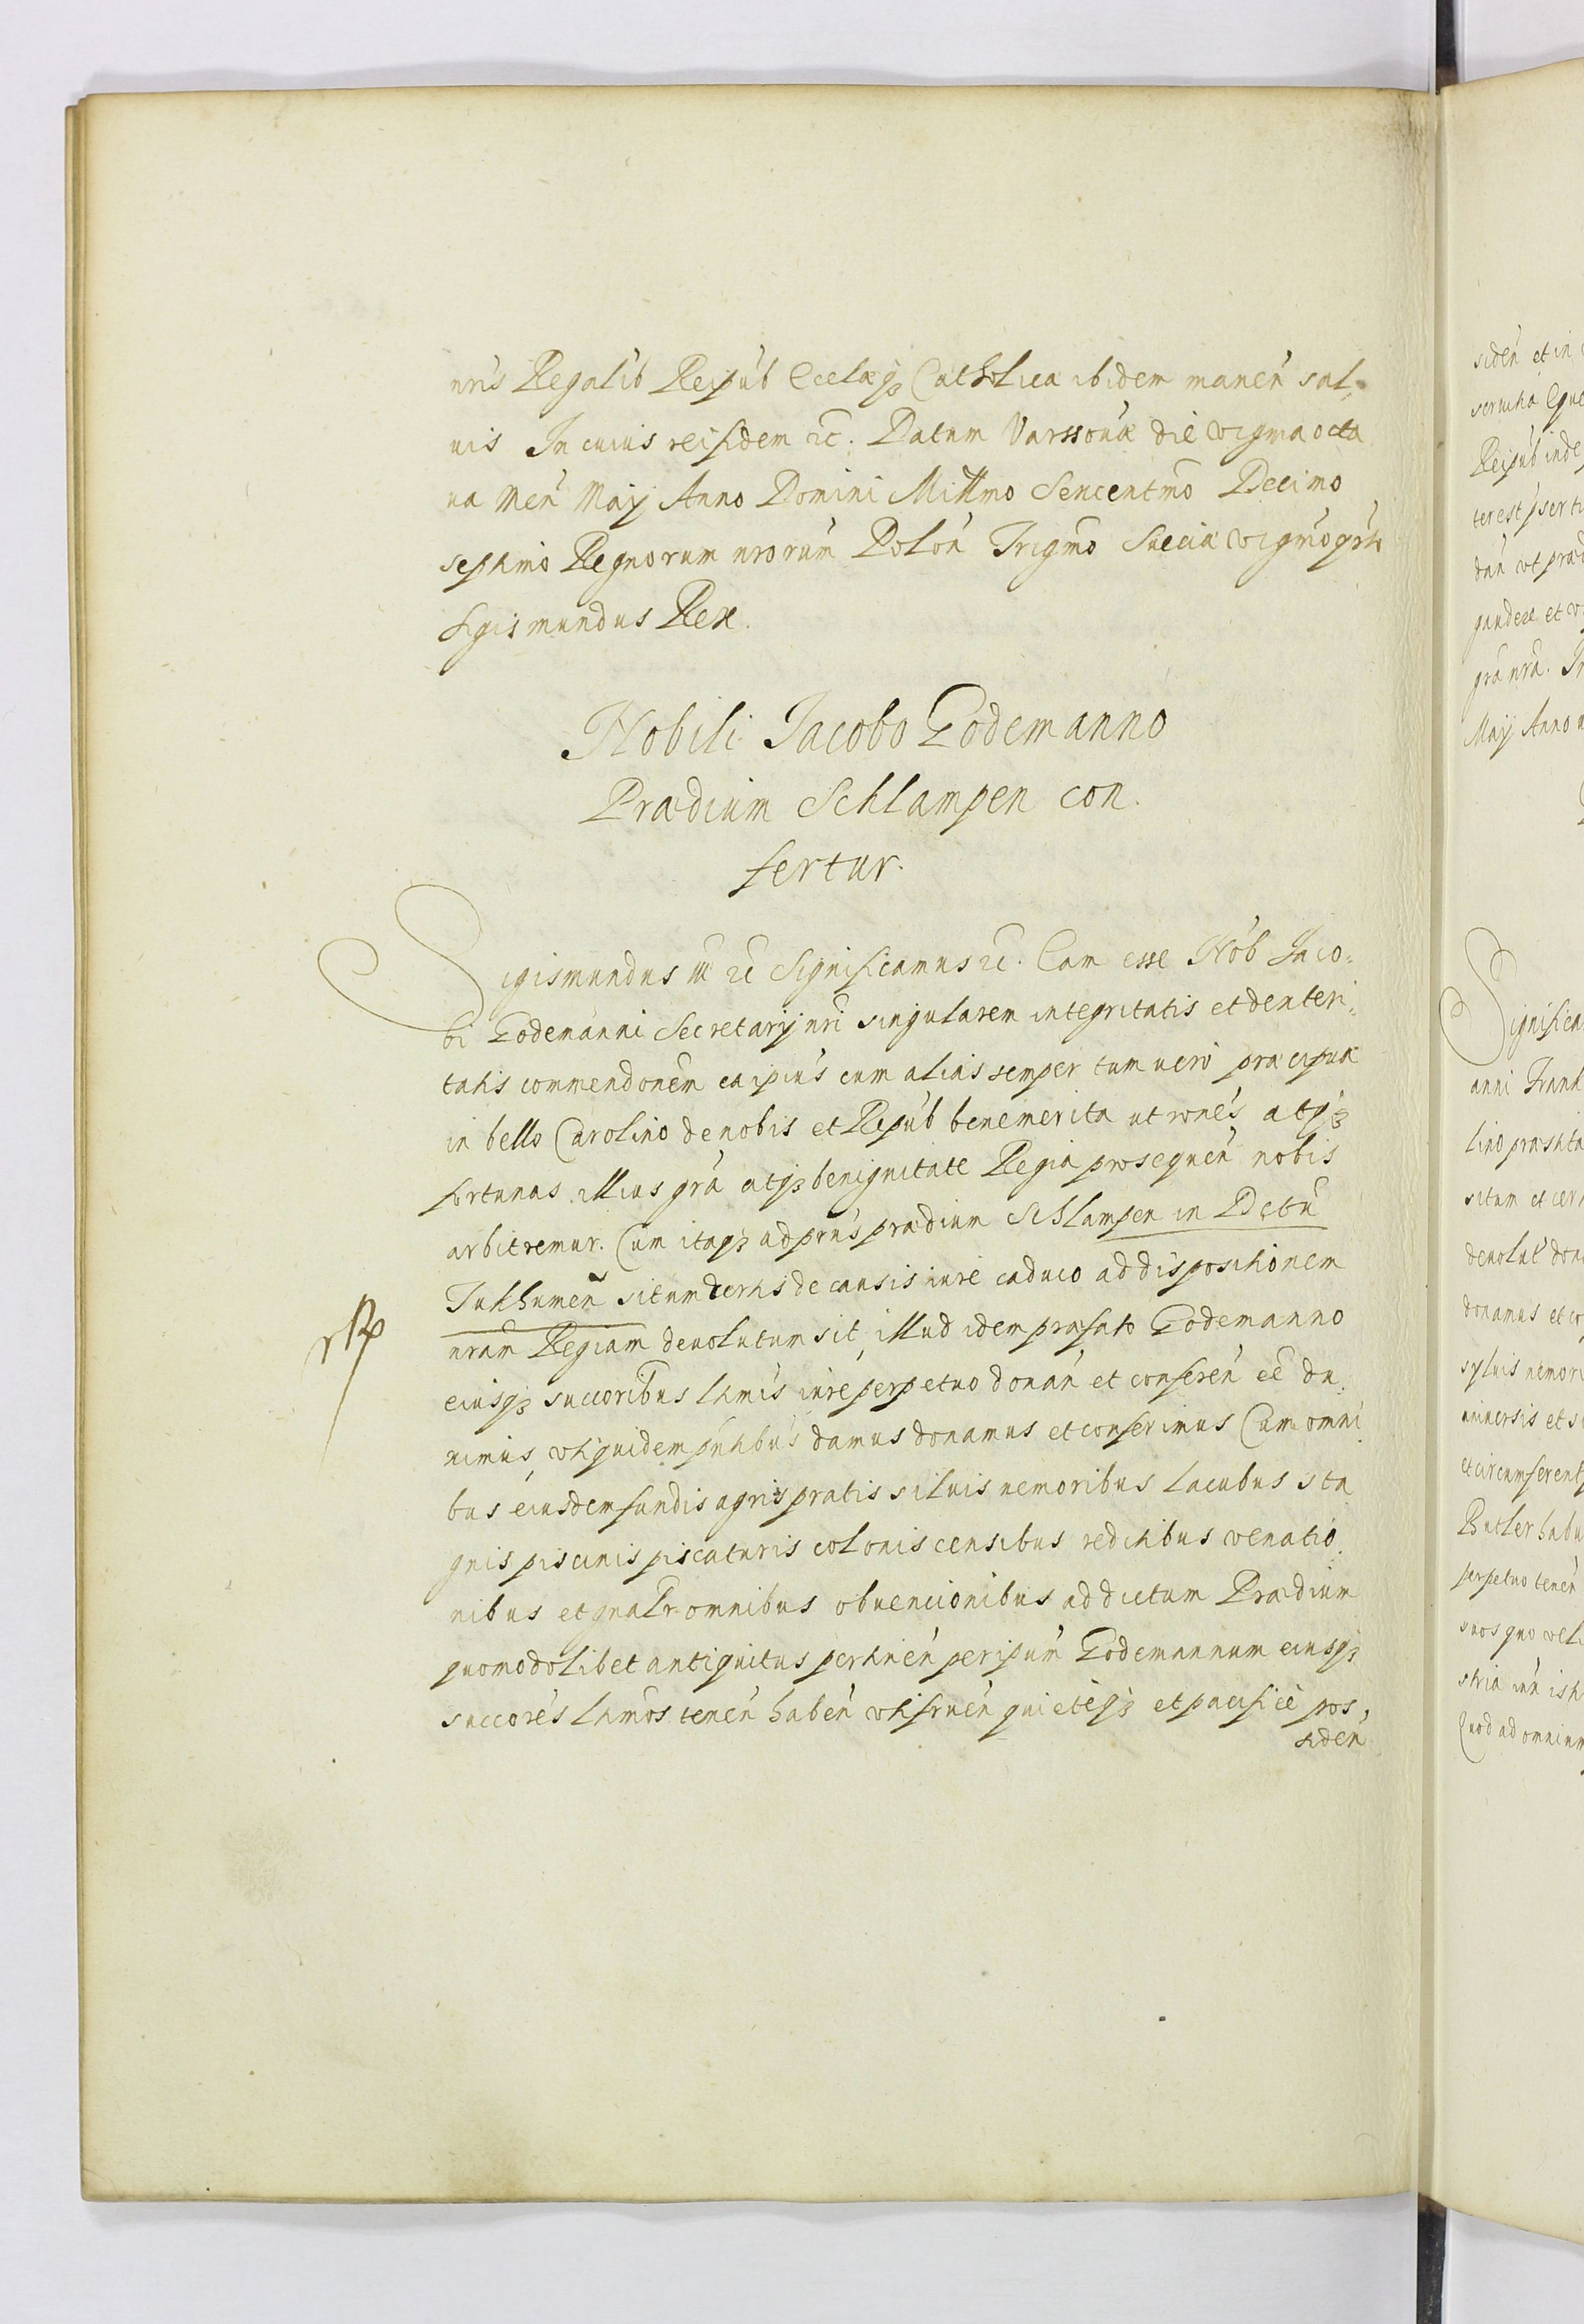 nris Regalib Reipub Ecclæq3 Catholicæ ibidem manen sal-
uis In cuius rei fidem etc. Datum Varssouiæ die vigma octa
ua Men Maij Anno Domini Millmo Sexcentmo Decimo
septimo Regnorum nrorum Polon Trigmo Sueciæ vigmoqrto
Sigismundus Rex.
Nobili Jacobo Godemanno
Prædium Schlampen con.
fertur.
Sigismundus III etc Significamus etc. Eam esse Nob Jaco=
bi Godemanni Secretarij nri singularem integritatis et dexteri=
tatis commendonem ea ipius cum alias semper tum uero præcipuæ
in bello Carolino de nobis et Repub benemerita ut rones atq3
fortunas illius gra atq3 benignitate Regia prosequen nobis
arbitremur. Cum itaq3 ad prns prædium Schlampen in Dctu
Tukhumen situm certis de causis iure caduco ad dispositionem
rRp
nram Regiam deuolutum sit, illud idem præfato Godemanno
eiusq3 succoribus ltmis iure perpetuo donan et conferen eē du
ximus, vti quidem pntibus damus donamus et conferimus Cum omni
bus eiusdem fundis agris pratis siluis nemoribus lacubus sta
gnis piscinis piscaturis colonis censibus reditibus venatio
nibus et gnalr omnibus obuencionibus ad dictum Prædium
quomodolibet antiquitus pertinen per ipum Godemannum eiusq3
succores ltmos tenen haben vtifruen quieteq3 et pacifice pos,
siden
siden et in
seruitia Eque
Reipub inde
terest pserti
dan vt præd
gaudere et v
gra nra. In
Maij Anno u
Significa
anni Frank
lino præstita
situm et cert
deuolut dona
donamus et co
syluis nemori
uniuersis et si
et circumferent
Butler habu
perpetuo tenen
suos quo veli
stria
Quod ad omnium